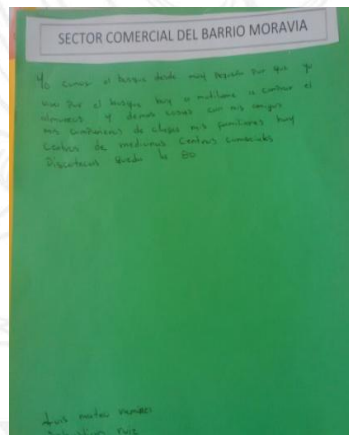 SECTOR COMERCIAL DEL BARRIO MORAVIA
Yo conosco el bosque desde muy pequeña por que yo
vivo por el bosque hoy a comprar el
almuerzo y demas cosas con mis amigos
mis compañeros de clases mis familiares hay
Centros de medicinas Centros comerciales
Discotecas queda la 80
Luis
ruiz